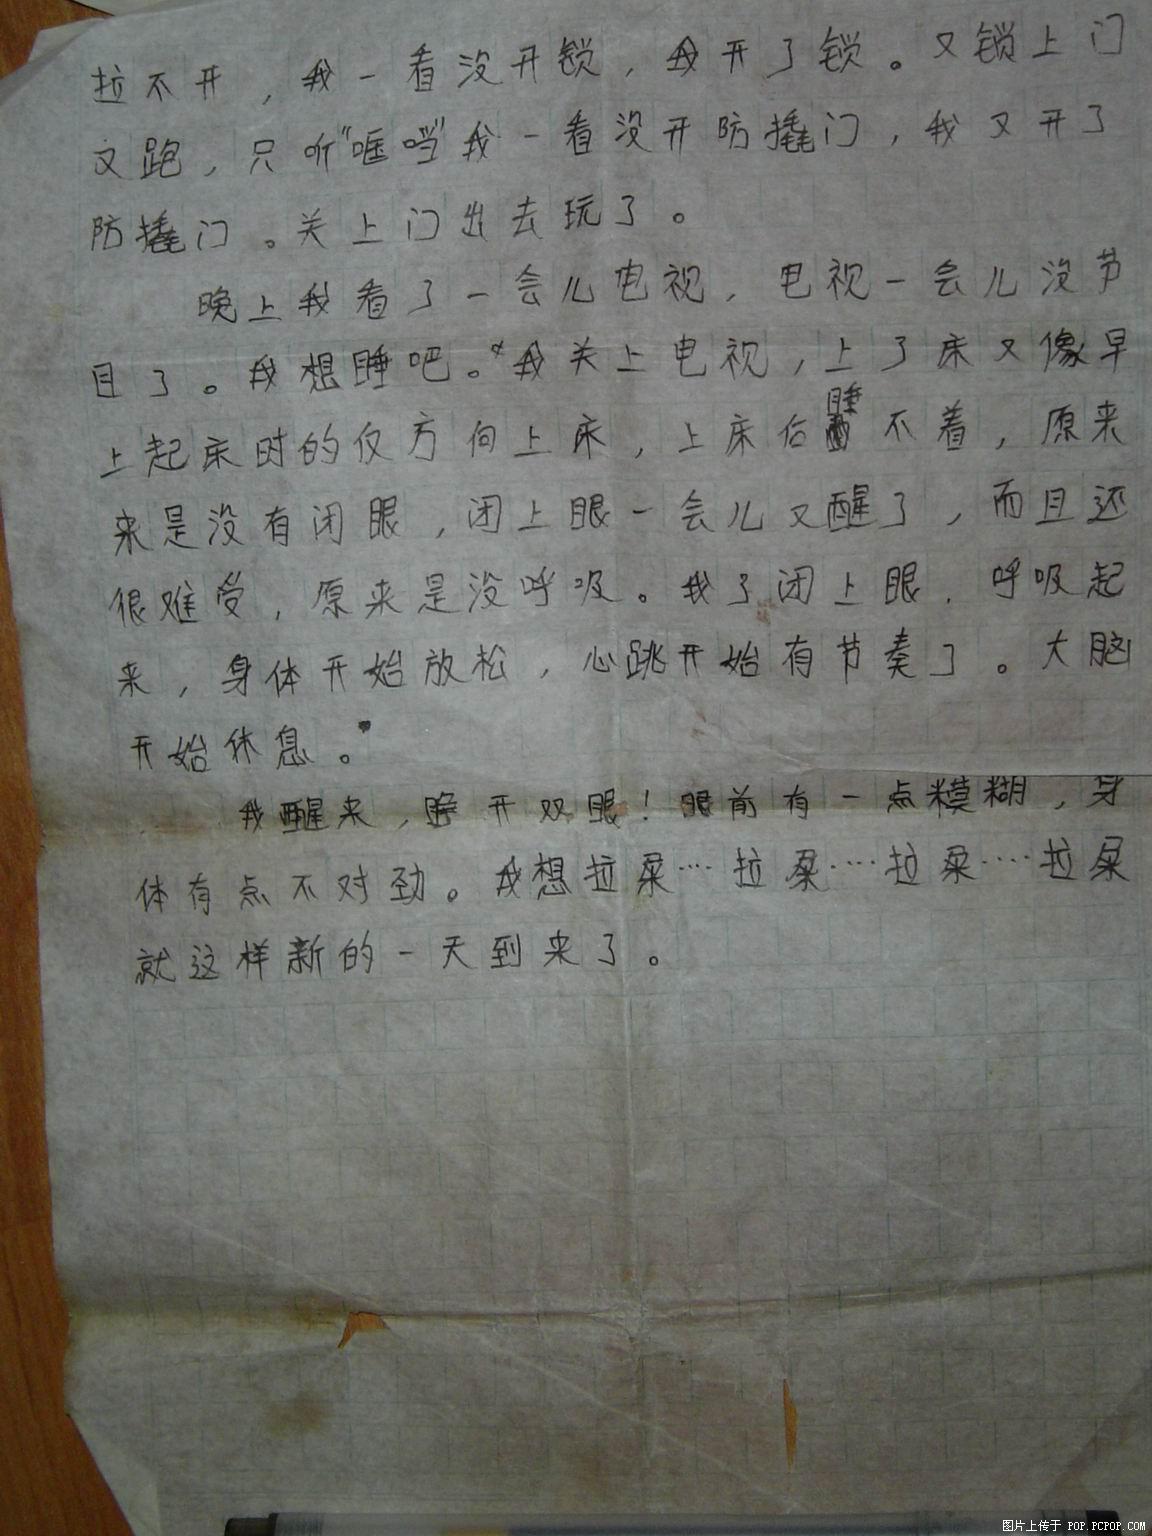 拉不开，我一看没开锁，我开了锁。又锁上门
又跑，只听"哐当"我一看没开防撬门，我又开了
防撬门。关上门出去玩了。
晚上我看了一会儿电视，电视一会儿没节
目了。我想睡吧。"我关上电视，上了床又像早
上起床时的仅方向上床，上床后睡不着，原来
来是没有闭眼，闭上眼一会儿又醒了，而且还
很难受，原来是没呼吸。我了闭上眼．呼吸起
来，身体开始放松，心跳开始有节奏了。大脑
开始休息。"
我醒来，睁开双眼！眼前有一点模糊，身
体有点不对劲。我想拉屎…拉屎…拉屎…拉屎
就这样新的一天到来了。
图片上传于 POP.PCPOP.COM